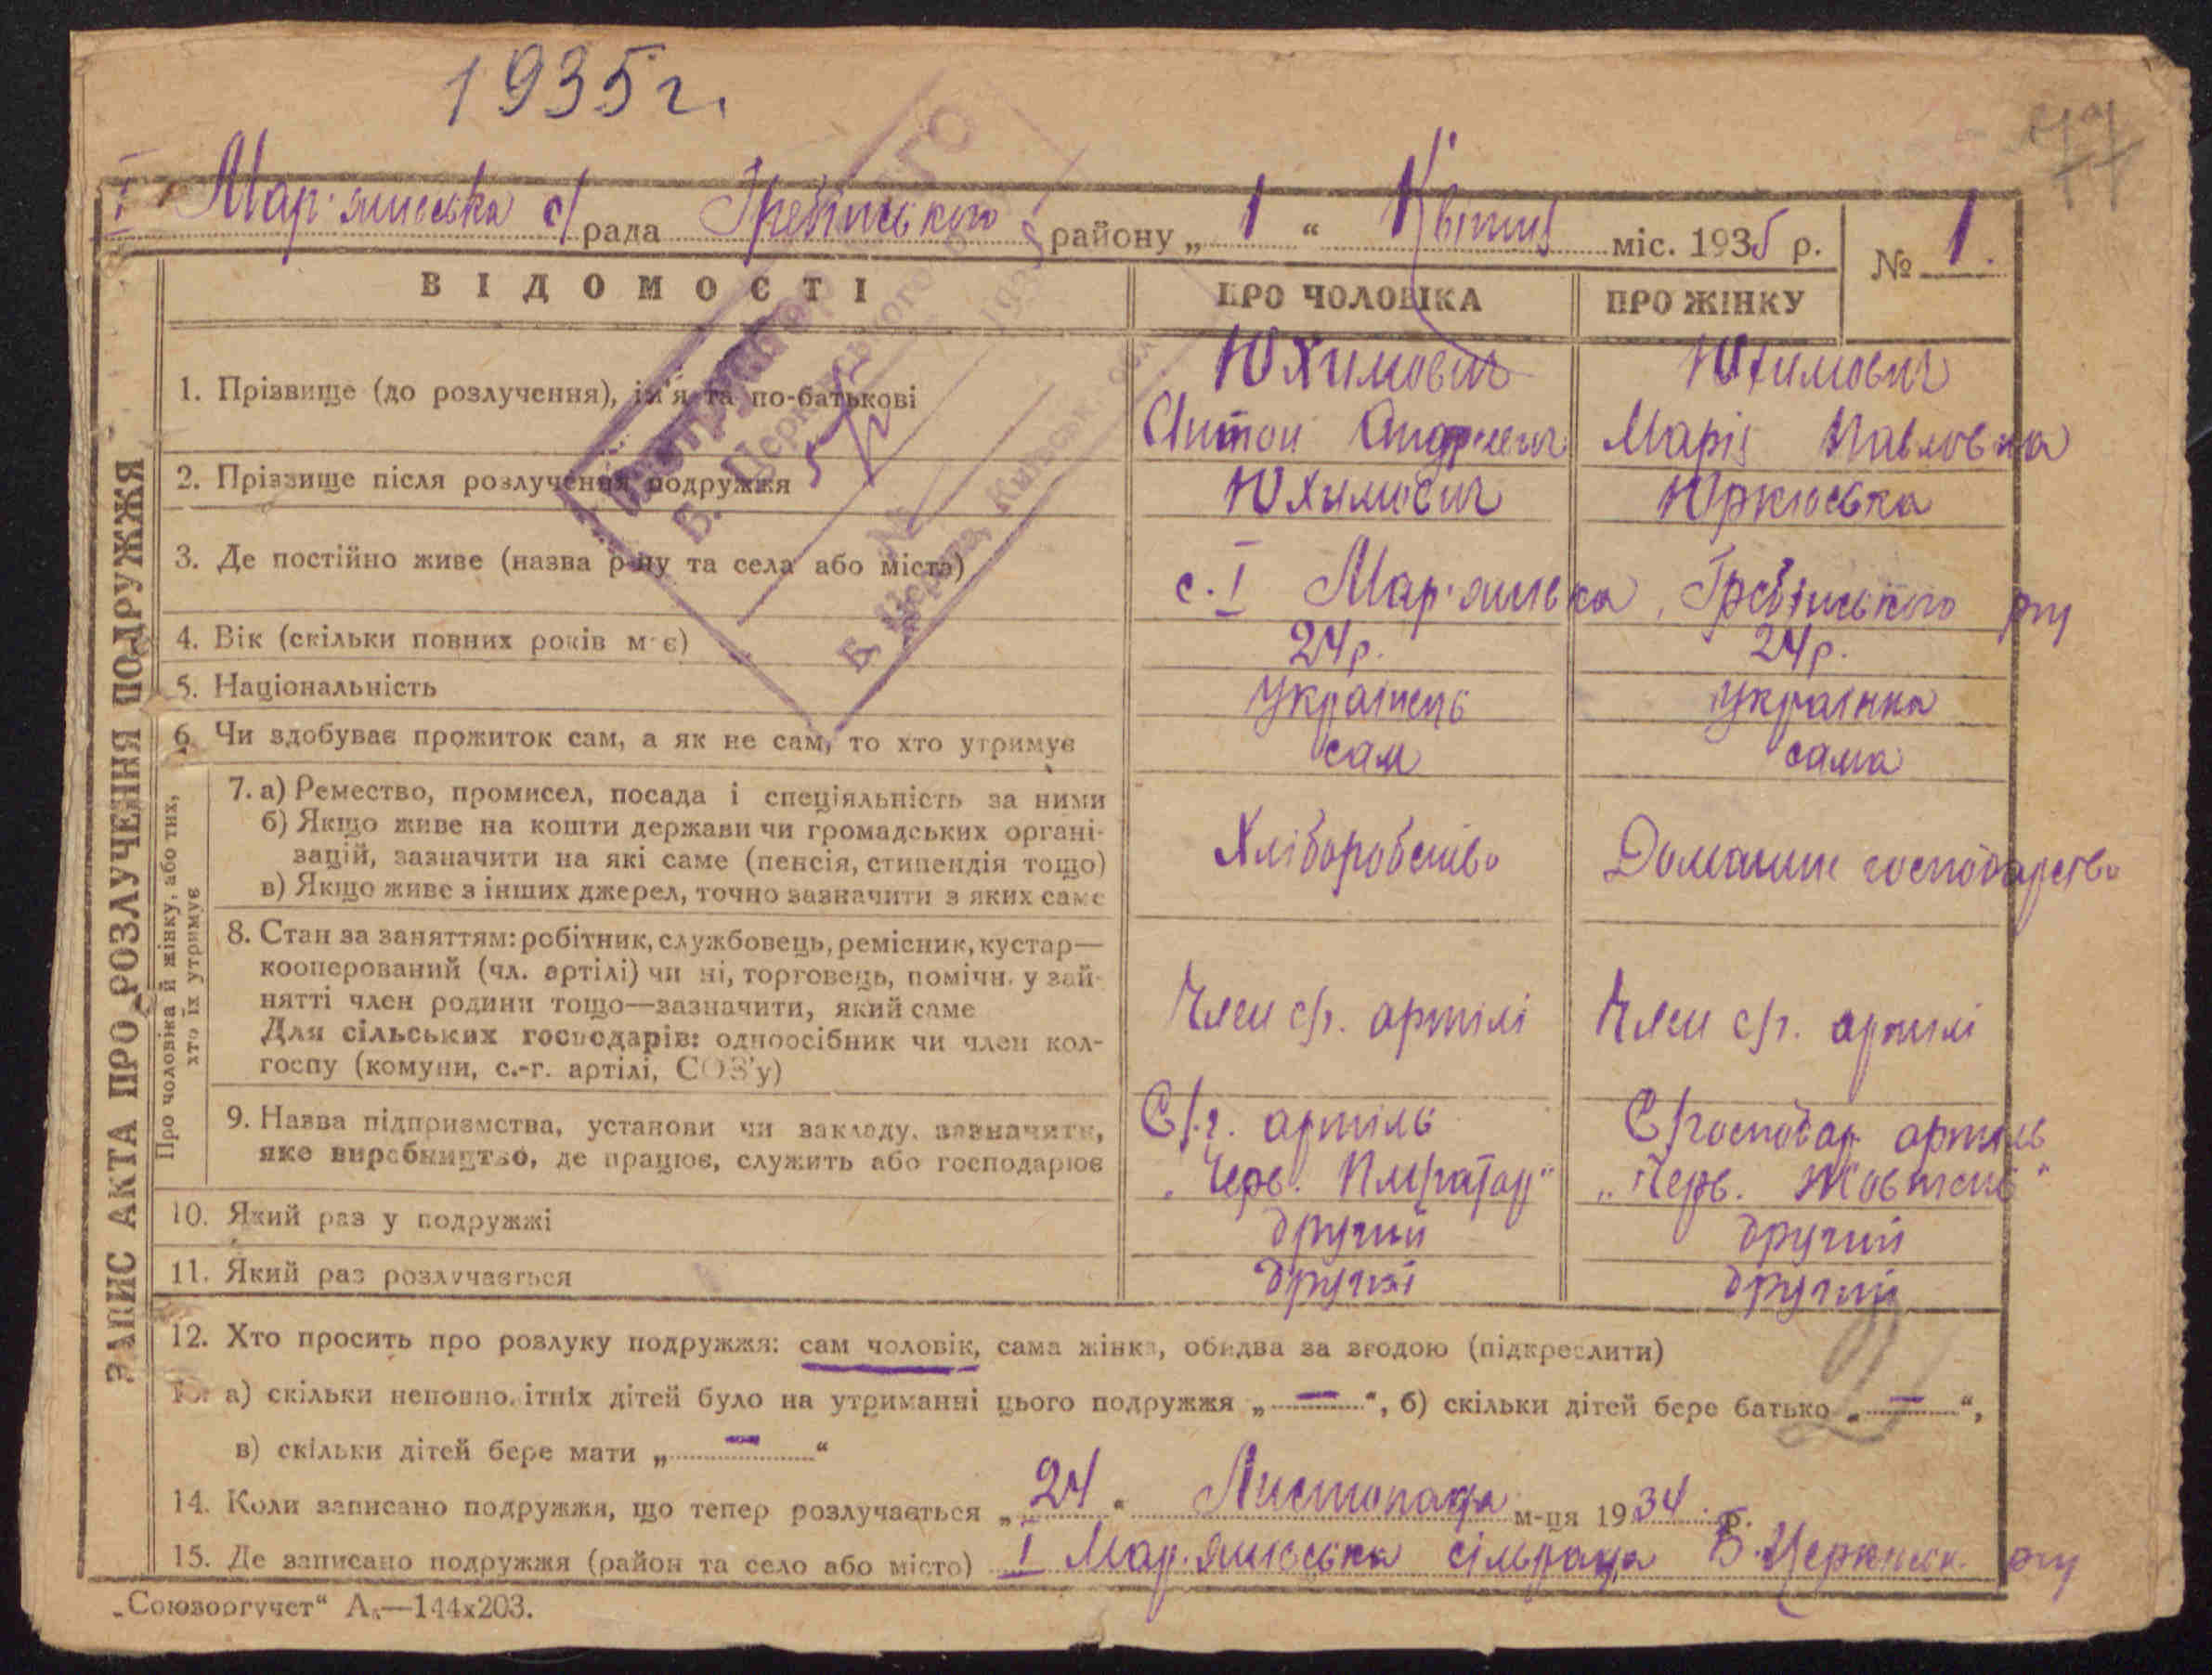 1935 г.
77
І Мар'янівська с/рада Гребінського району „ 1 “ Квітня міс. 1935 р. № 1.
ВІДОМОСТІ ПРО ЧОЛОВІКА ПРО ЖІНКУ
ЗАПИС АКТА ПРО РОЗЛУЧЕННЯ ПОДРУЖЖЯ
1. Прізвище (до розлучення), ім'я та по-батькові
Юхимович Юхимович
Антон Андреевич Марія Павловна
2. Прізвище після розлучення подружжя Юхимович Юрківська
3. Де постійно живе (назва р-ну та села або міста) с. І Мар'янівка, Гребінського р-ну
4. Вік (скільки повних років має) 24 р. 24 р.
5. Національність Українець Українка
6. Чи здобуває прожиток сам, а як не сам, то хто утримує сам сама
Про чоловіка й жінку, або тих,
хто їх утримує
7. а) Ремество, промисел, посада і спеціяльність за ними
б) Якщо живе на кошти держави чи громадських органі-
зацій, зазначити на які саме (пенсія, стипендія тощо)
в) Якщо живе з інших джерел, точно зазначити з яких саме
Хліборобство Домашнє господарство
8. Стан за заняттям: робітник, службовець, ремісник, кустар—
кооперований (чл. артілі) чи ні, торговець, помічн. у зай-
нятті член родини тощо—зазначити, який саме
Для сільських господарів: одноосібник чи член кол-
госпу (комуни, с.-г. артілі, СОЗ'у)
Член с/г. артілі Член с/г. артілі
9. Назва підприємства, установи чи закладу, зазначити,
яке виробництво, де працює, служить або господарює
С/г. артіль С/господар артіль
„Черв. „Черв. Жовтень“
10. Який раз у подружжі другий другий
11. Який раз розлучається другий другий
12. Хто просить про розлуку подружжя: сам чоловік, сама жінка, обидва за згодою (підкреслити)
13. а) скільки неповнолітніх дітей було на утриманні цього подружжя „ — “, б) скільки дітей бере батько „ — “,
в) скільки дітей бере мати „ — “
14. Коли записано подружжя, що тепер розлучається „ 24 “ Листопада м-ця 1934 р.
15. Де записано подружжя (район та село або місто) І Мар'янівська сільрада Б. Церківськ. р-ну
„Союзоргучет“ А₅—144х203.